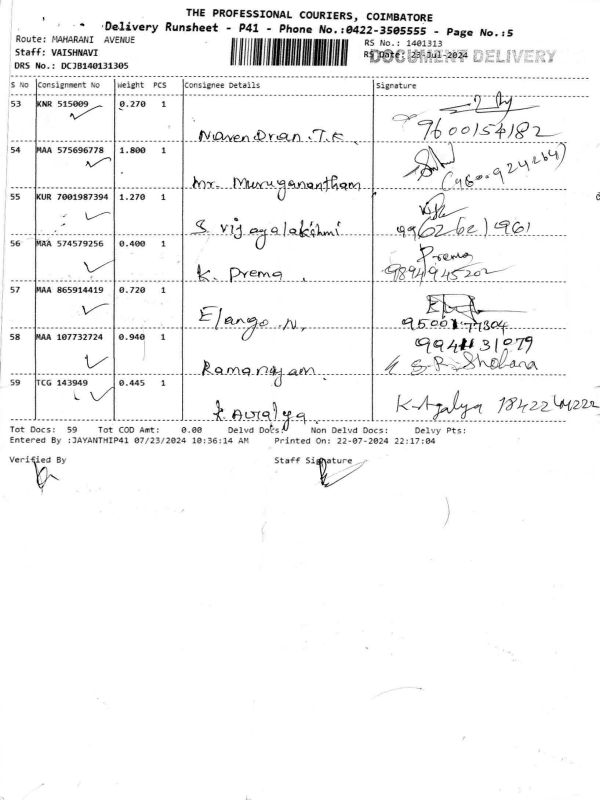 THE PROFESSIONAL COURIERS, COIMBATORE
Delivery Runsheet - P41 - Phone No.:0422-3505555 - Page No.:5
Route: MAHARANI AVENUE
RS No.: 1401313
Staff: VAISHNAVI
RS Date: 23-Jul-2024
DOCUMENT DELIVERY
DRS No.: DCJB140131305
S No Consignment No Weight PCS Consignee Details Signature
53 KNR 515009 0.270 1
Navendran.T.K. 9600154182
54 MAA 575696778 1.800 1
Mr. Muruganantham
55 KUR 7001987394 1.270 1
S vijayalakshmi
56 MAA 574579256 0.400 1 Prema
K. Prema. 9894945202
57 MAA 865914419 0.720 1
Elango.N. 9500177304
58 MAA 107732724 0.940 1 9941131079
Ramanayam. S.R. Shobana
59 TCG 143949 0.445 1
K-Agalya
Tot Docs: 59 Tot COD Amt: 0.00 Delvd Docs: Non Delvd Docs: Delvy Pts:
Entered By :JAYANTHIP41 07/23/2024 10:36:14 AM Printed On: 22-07-2024 22:17:04
Verified By Staff Signature